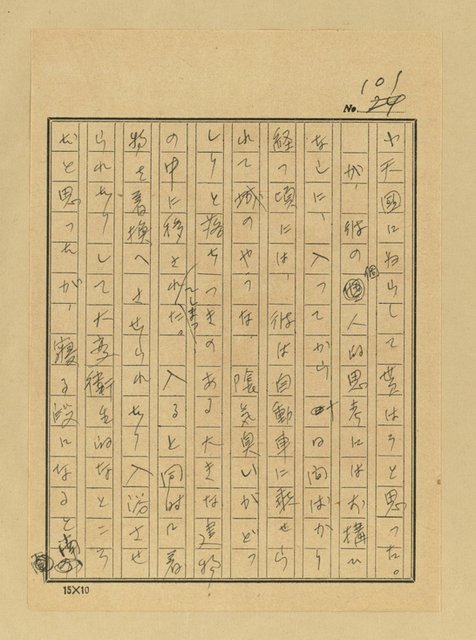 101
No. 24
や天国にねらして貰はうと思った。
が、彼の個人的思考にはお構ひ
なしに、入ってから十日間ばかり
経つ頃には、彼は自動車に乗せら
れて城のやうな、陰気臭いがどっ
しりと落ちつきのある大きな建物
の中に移されてしまった。入ると同時に着
物を着換へさせられたり入浴させ
られたりして大変衛生的なところ
だと思ったが、寝る段になると南
15×10